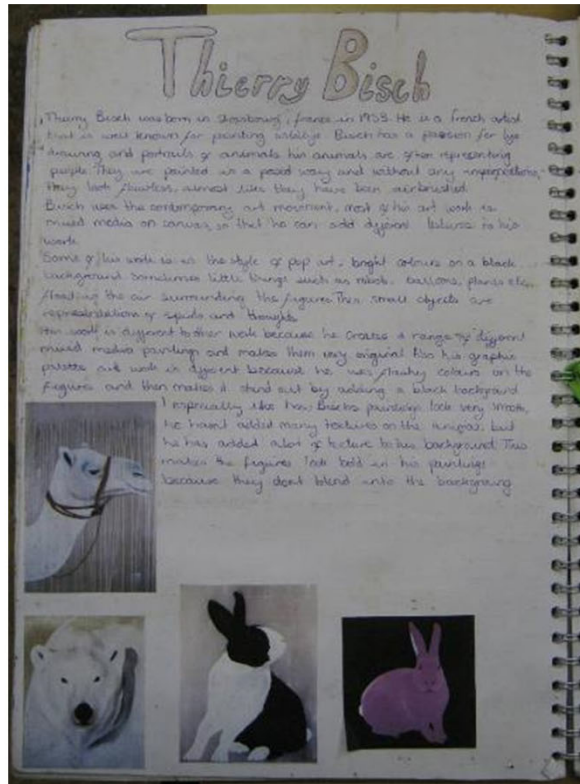 Thierry Bisch
Thierry Bisch was born in Strasbourg, france in 1953. He is a french artist
that is well known for painting wildlife. Bisch has a passion for life
drawing and portraits of animals his animals are often representing
people. They are painted in a posed way and without any imperfections,
they look flawless, almost like they have been airbrushed.
Bisch uses the contemporary art movement, most of his art work is
mixed media on canvas, so that he can add different textures to his
work.
Some of his work is in the style of pop art, bright colours on a black
background sometimes little things such as robots, balloons, plants etc.
floating the air surrounding the figures. These small objects are
representation of spirits and thoughts
His work is different to other work because he creates a range of different
mixed media paintings and makes them very original. Also his graphic
palette art work is different because he uses flashy colours on the
figures and then makes it stand out by adding a black background
I especially like how Bischs paintings look very smooth,
he hasn't added many textures on the animal, but
he has added alot of texture to his background. This
makes the figures look bold in his paintings
because they dont blend into the background